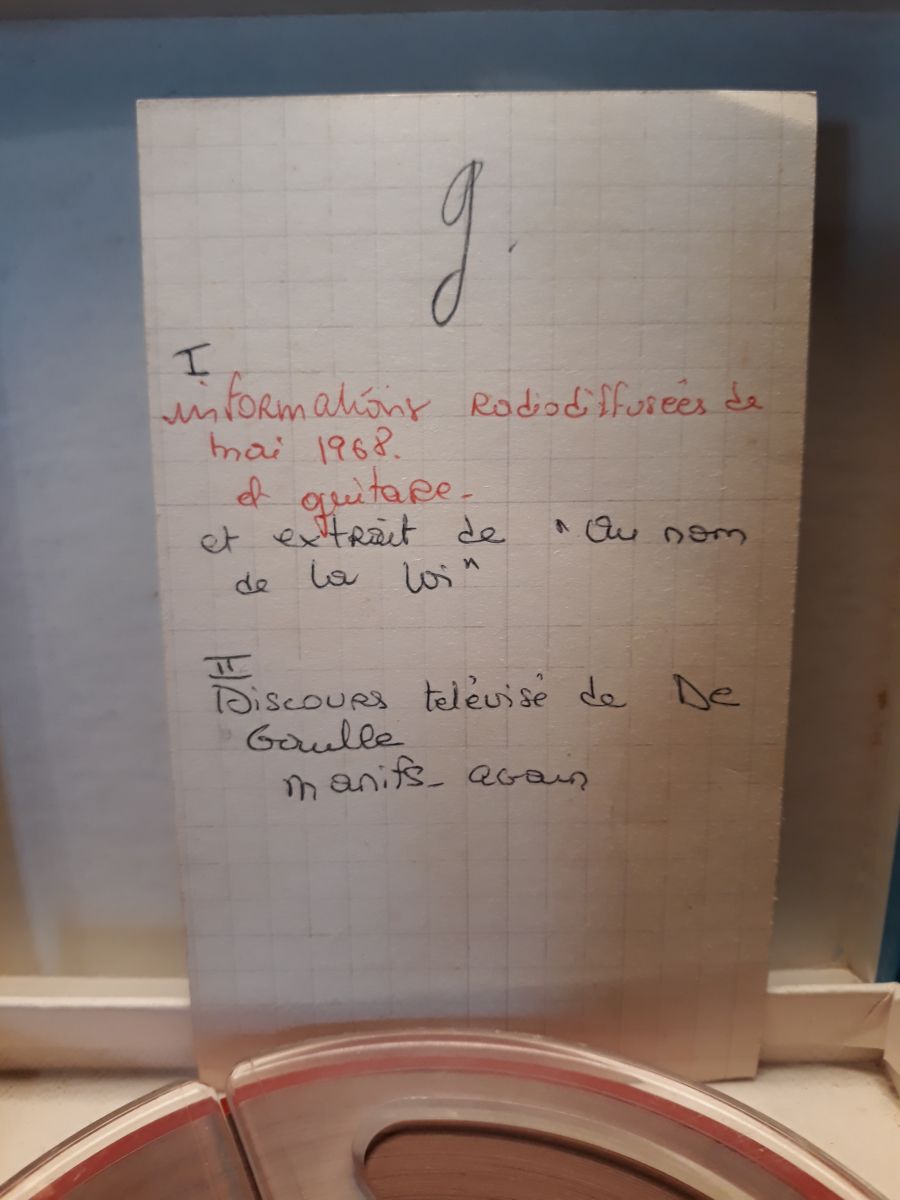 9.
I
informations Radiodiffusées de
mai 1968.
et guitare -
et extrait de "Au nom
de la loi"
II
Discours télévisé de De
Gaulle
manifs - again